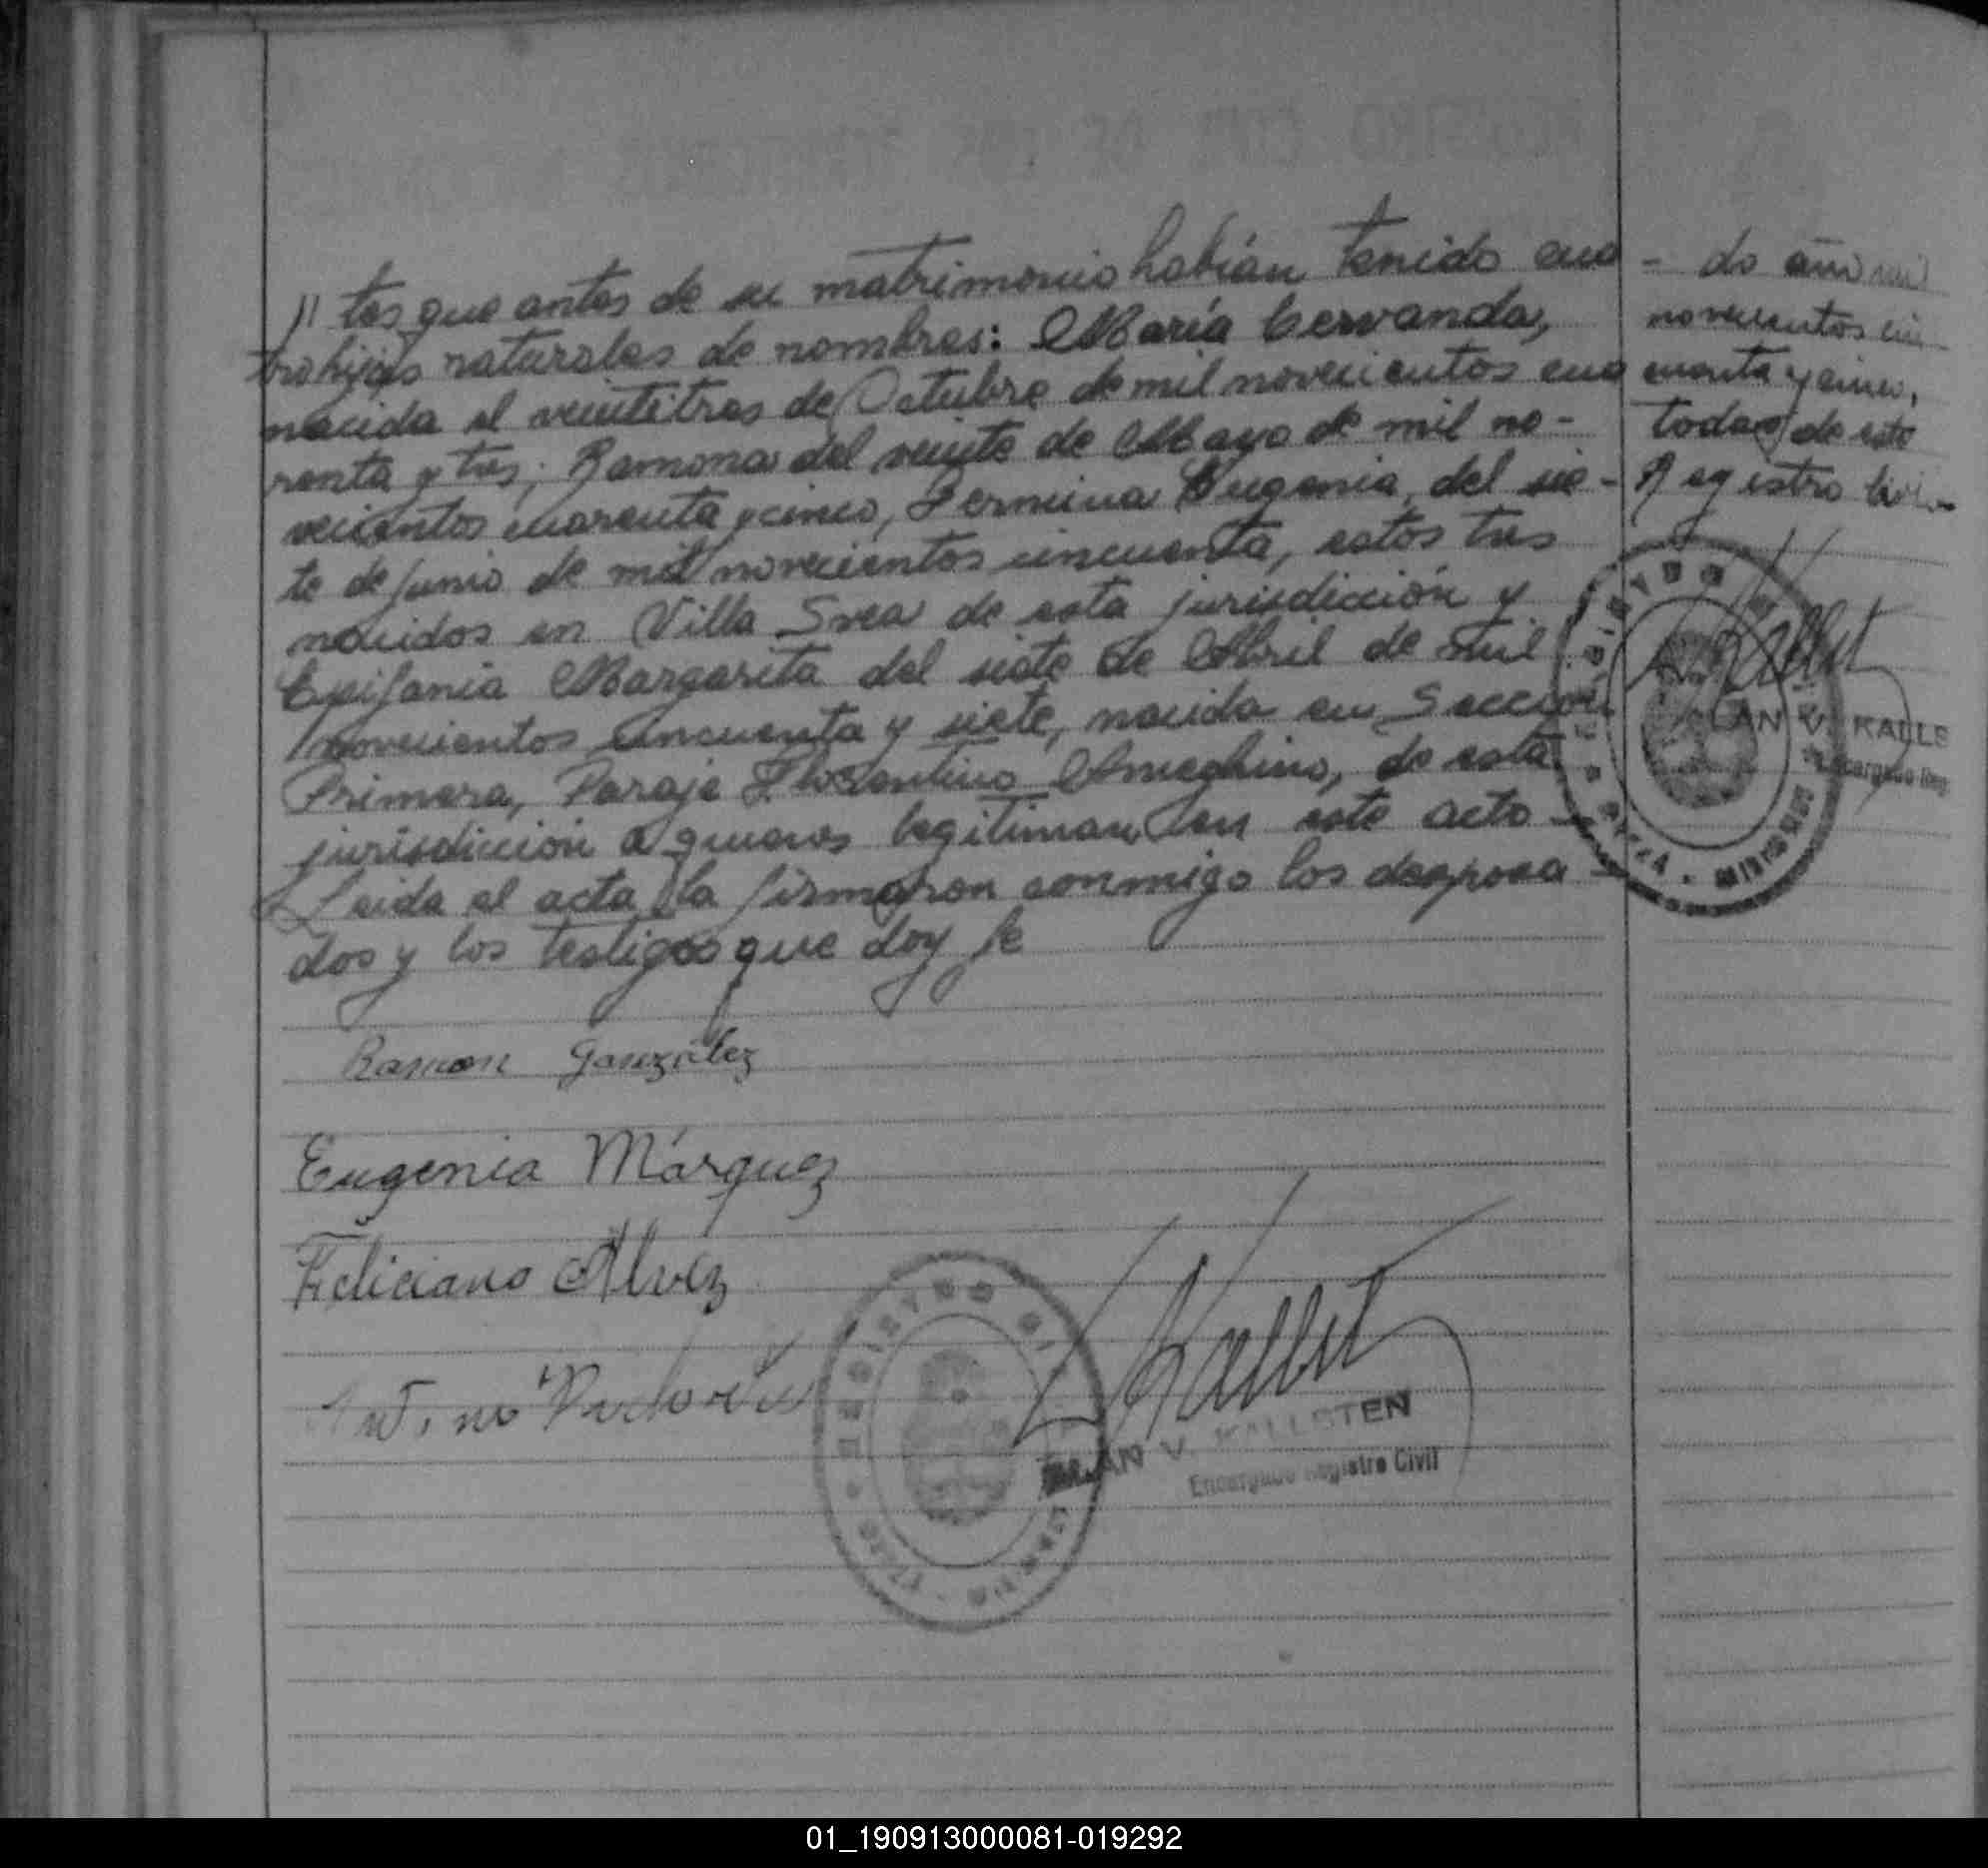 // tes que antes de su matrimonio habían tenido cua
tro hijas naturales de nombres: María Cervanda,
nacida el veintitres de Octubre de mil novecientos cua
renta y tres, Ramona del veinte de Mayo de mil no-
vecientos cuarenta y cinco, Fermina Eugenia, del sie-
te de Junio de mil novecientos cincuenta, estos tres
nacidos en Villa Svea de esta jurisdicción y
Epifania Margarita del siete de Abril de mil
novecientos cincuenta y siete, nacida en Sección
Primera, Paraje Florentino Ameghino, de esta
jurisdicción a quienes legitiman en este acto
Leida el acta la firmaron conmigo los desposa
dos y los testigos que doy fe
Ramon González
Eugenia Márquez
Feliciano Alvez
ALAN V. KALLSTEN
Encargado Registro Civil
- do año mil
novecientos cin
cuenta y cinco,
todas de este
Registro Civil
ALAN V. KALLS
Encargado Reg
01_190913000081-019292